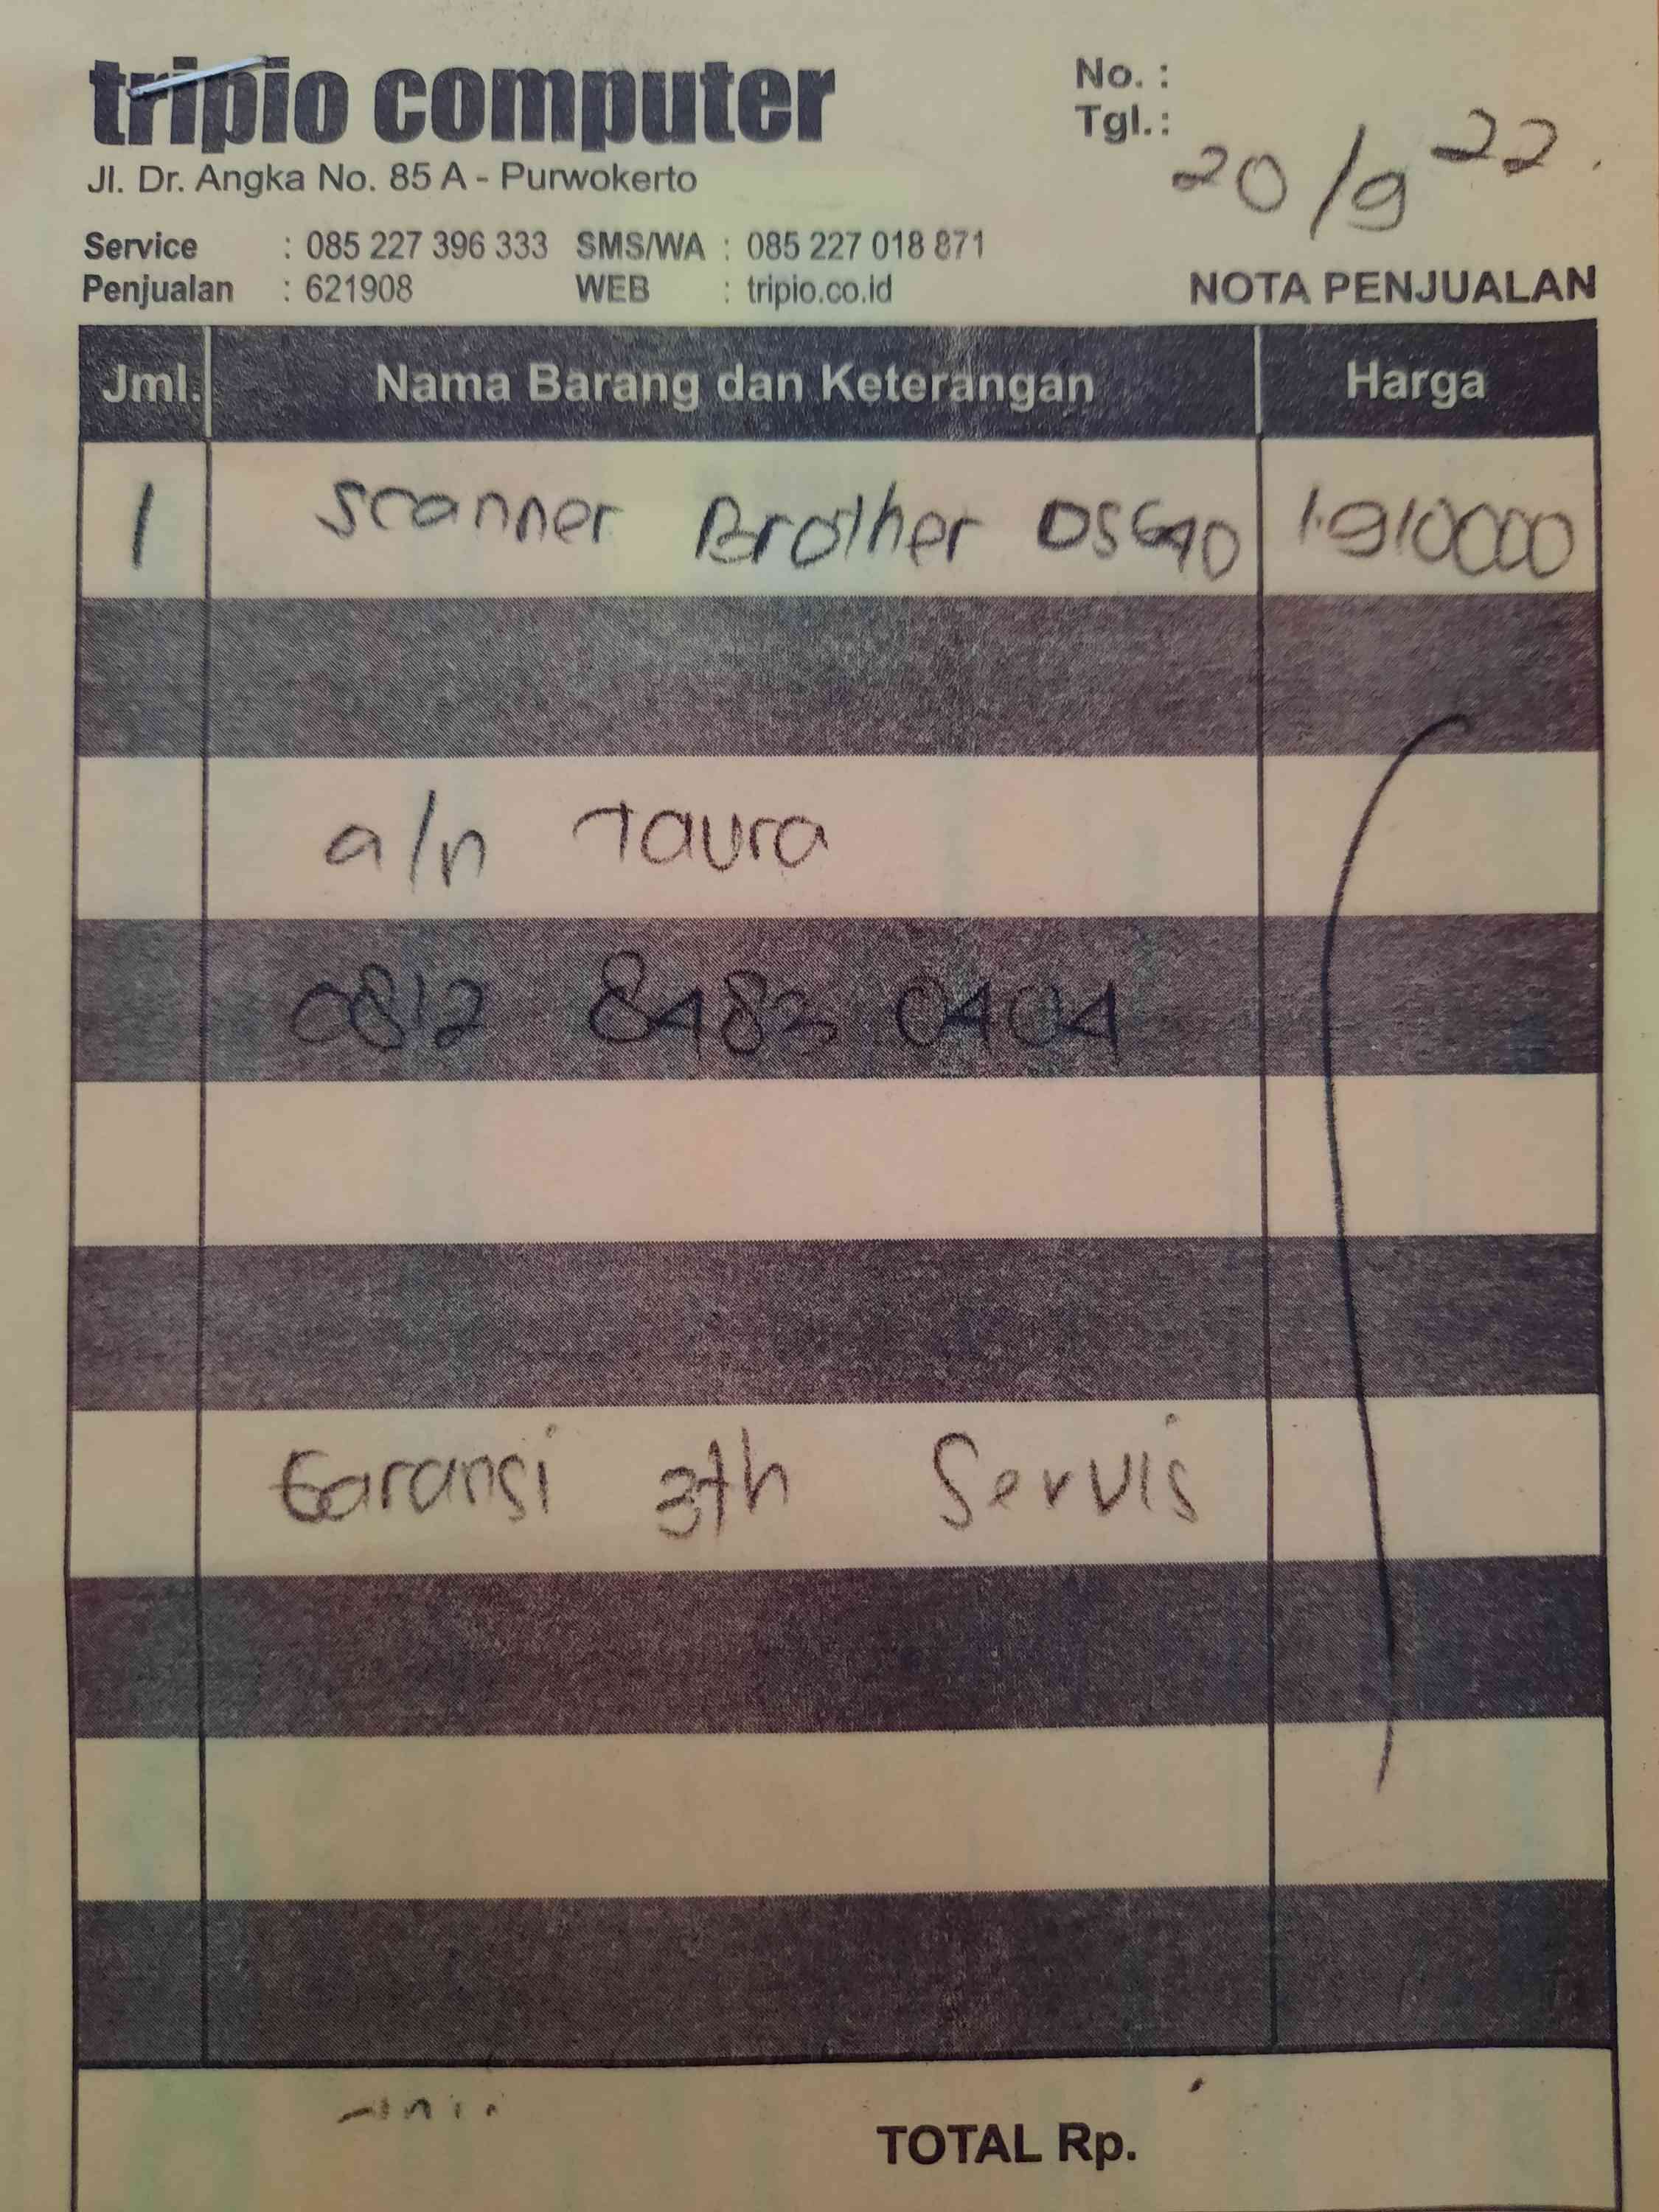 tripio computer
Jl. Dr. Angka No. 85 A - Purwokerto
No. :
Tgl. : 20/9 22.
Service : 085 227 396 333 SMS/WA : 085 227 018 871
Penjualan : 621908 WEB : tripio.co.id
NOTA PENJUALAN
Jml. Nama Barang dan Keterangan Harga
1 Scanner Brother DS640 1.910000
a/n Taura
0812 8483 0404
Garansi 3th Servis
TOTAL Rp.